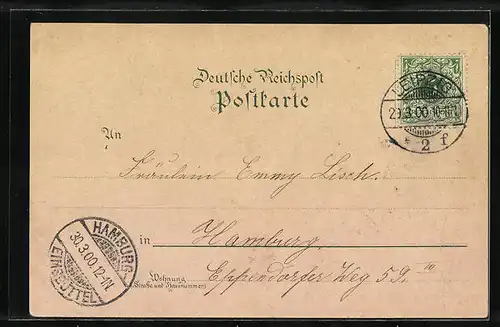 Deutsche Reichspost
Postkarte
LEIPZIG
29.3.00.10-11N
* 2 f
An
Fräulein Emmy Lisch.
in Hamburg.
Wohnung
(Straße und Hausnummer)
Eppendorfer Weg 59 III
HAMBURG
30.3.00.12-1N.
EIMSBÜTTEL